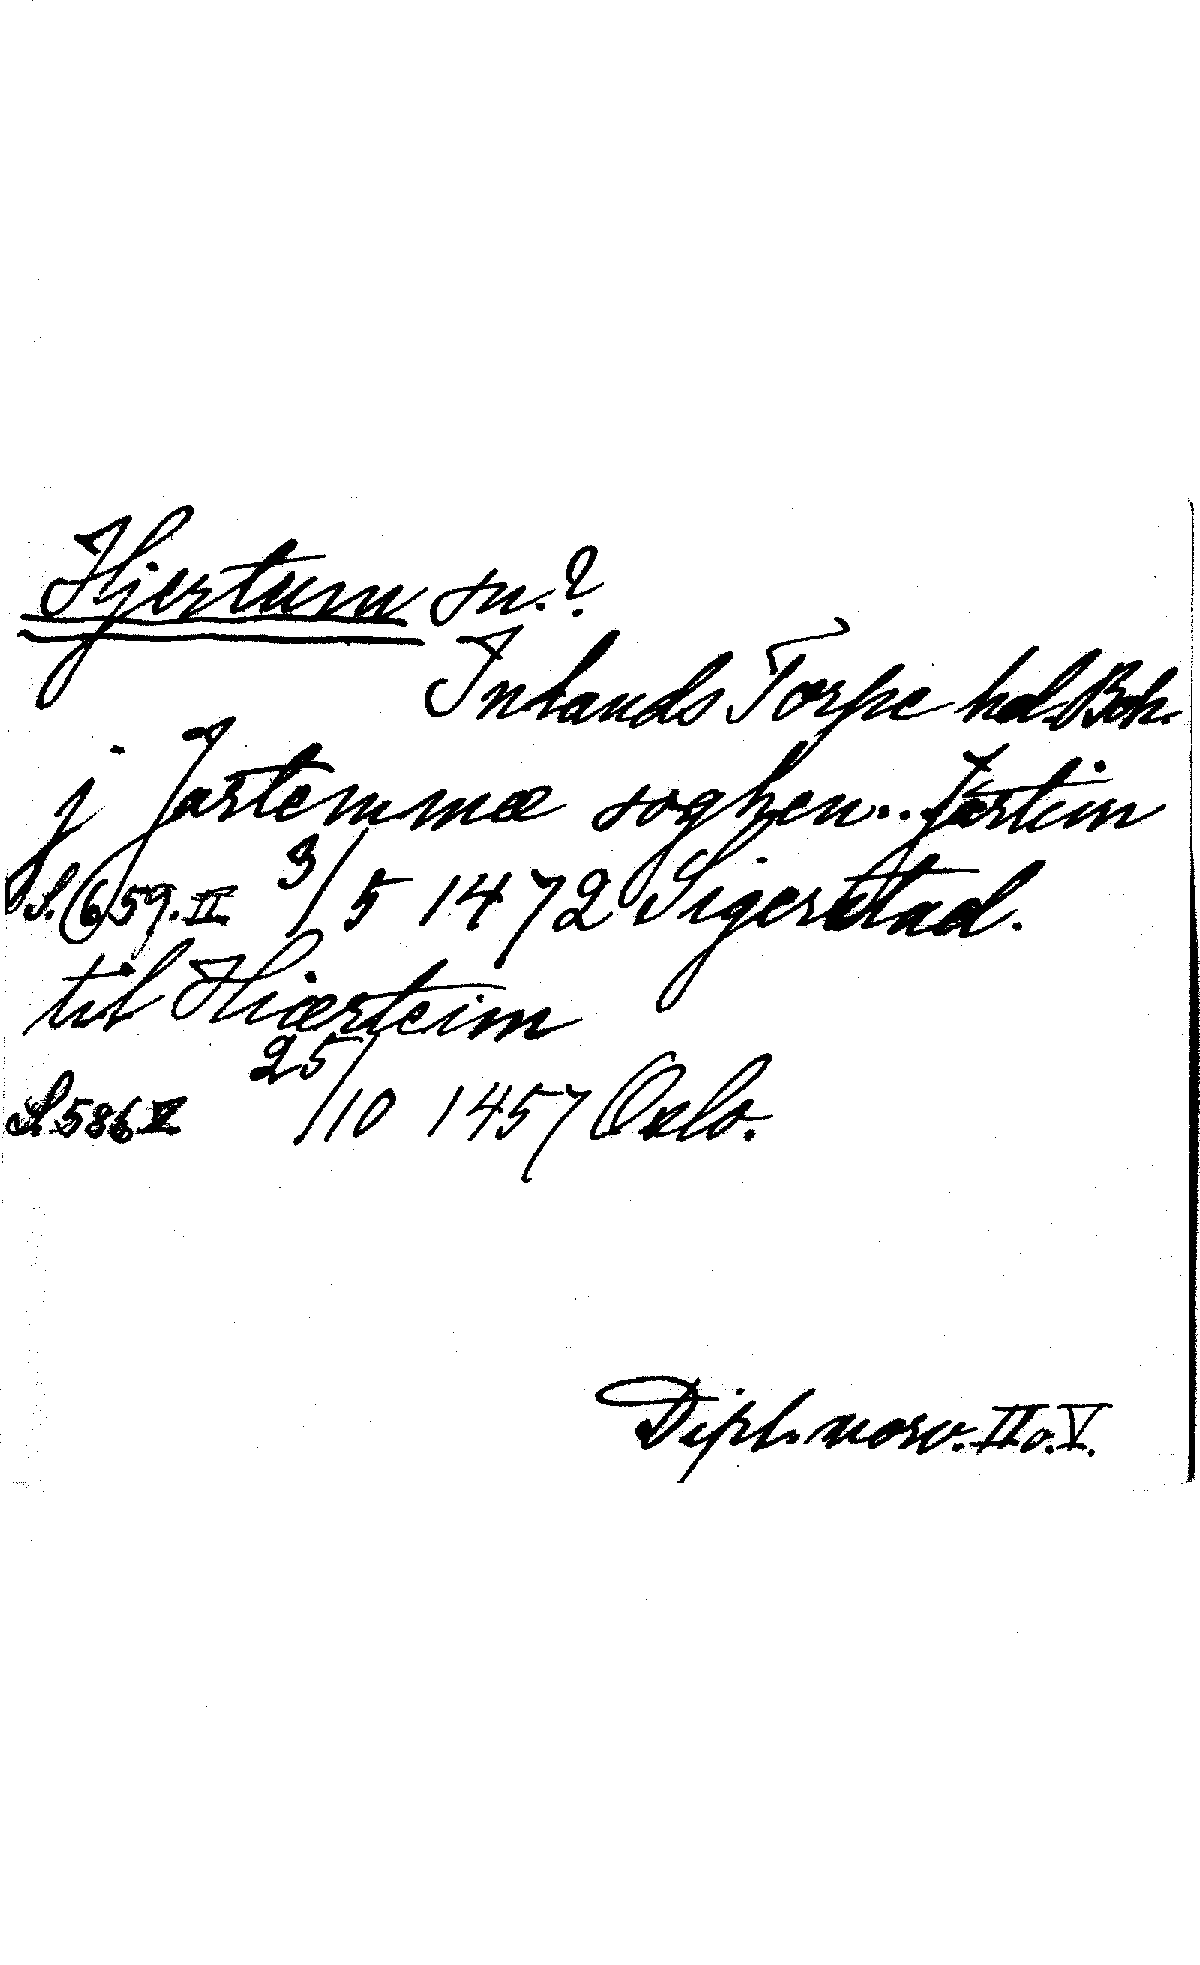 Hjertum sn.?
Inlands Torpe hd. Boh.
j Jartemmæ soghen.. Jærtim
S. 659. II 3/5 1472 Sigerstad.
til Hiærteim
S. 586 V 25/10 1457 Oslo.
Dipl. norv. II o. V.